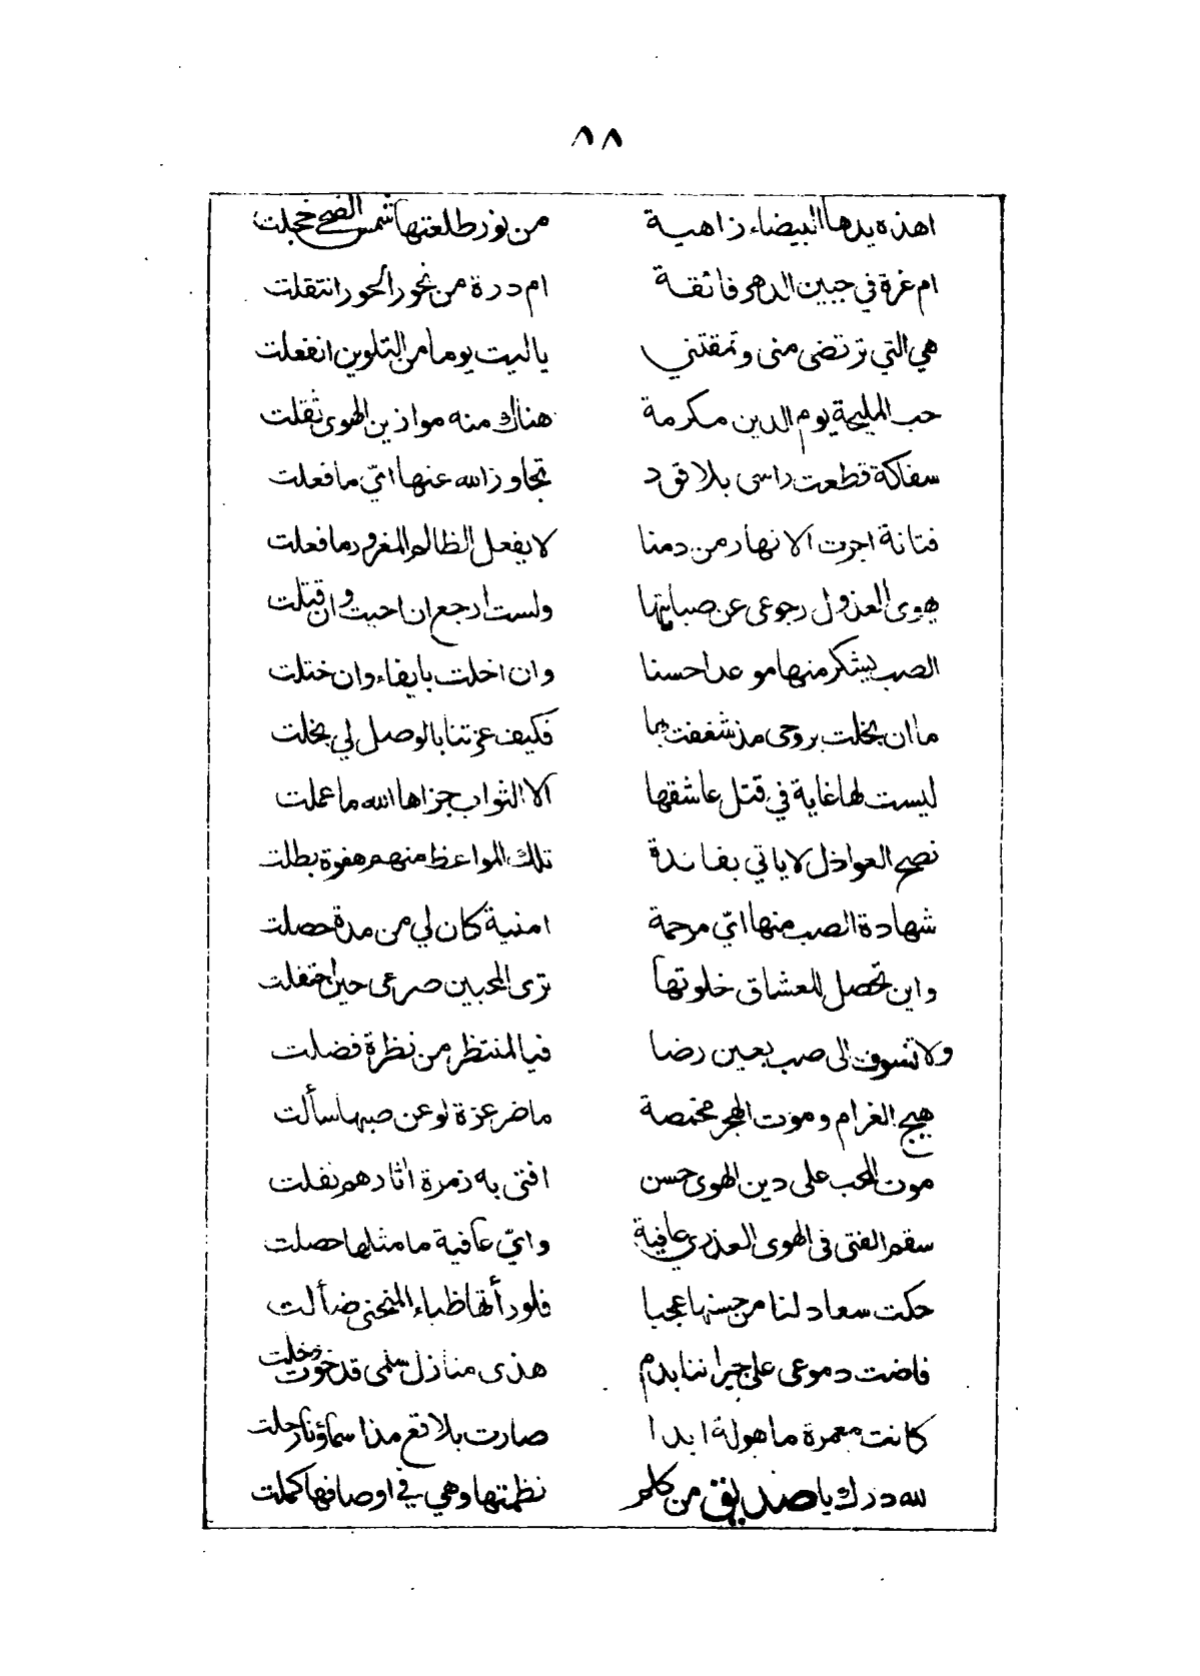 ٨٨
اهذه يدها البيضاء زاهية من نور طلعتها شمس الضحى خجلت
ام غرة في جبين الدهر فائقة ام درة من نحور الحور انتقلت
هي التي ترتضى منى وتمقتني ياليت يوما من التلوين انفعلت
حب المليحة يوم الدين مكرمة هناك منه موازين الهوى ثقلت
سفاكة قطعت راسى بلا قود تجاوز الله عنها اىّ مافعلت
فتانة اجرت الانهار من دمنا لا يفعل الظالم المغرور مافعلت
هوى العذول رجوعى عن صبابتها ولست ارجع ان احيت وان قتلت
الصب يشكر منها موعدا حسنا وان اخلت بايفاء وان ختلت
ما ان بخلت بروحى مذ شغفت بها فكيف عزتنا بالوصل لي بخلت
ليست لها غاية في قتل عاشقها الا الثواب جزاها الله ماعملت
نصح العواذل لا ياتي بفائدة تلك المواعظ منهم هفوة بطلت
شهادة الصب منها اىّ مرحمة امنية كان لي من مدة حصلت
واين تحصل للعشاق خلوتها ترى المحبين صرعى حين احتفلت
ولا تسوف الى صب بعين رضا فيا لمنتظر من نظرة فضلت
هيج الغرام وموت الهجر مخمصة ماضر عزة لو عن صبها سألت
موت المحب على دين الهوى حسن افتى به زمرة اثارهم نقلت
سقم الفتى فى الهوى العذري عافية واىّ عافية ما مثلها حصلت
حكت سعاد لنا من حسنها عجبا فلو رأتها ظباء المنحنى ضألت
فاضت دموعى على جيراننا بدم هذى منازل سلمى قد خوت وخلت
كانت معمرة ماهولة ابدا صارت بلاقع مذ اسماؤنا رحلت
لله درك يا صديق من كلم نظمتها وهي في اوصافها كملت